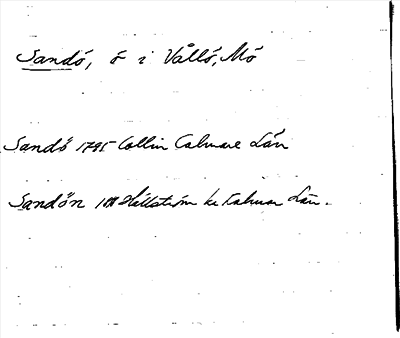 Sandö, ö i Vållö, Mö
Sandö 1795 Collin Calmare Län
Sandön Hällström Kalmar Län.